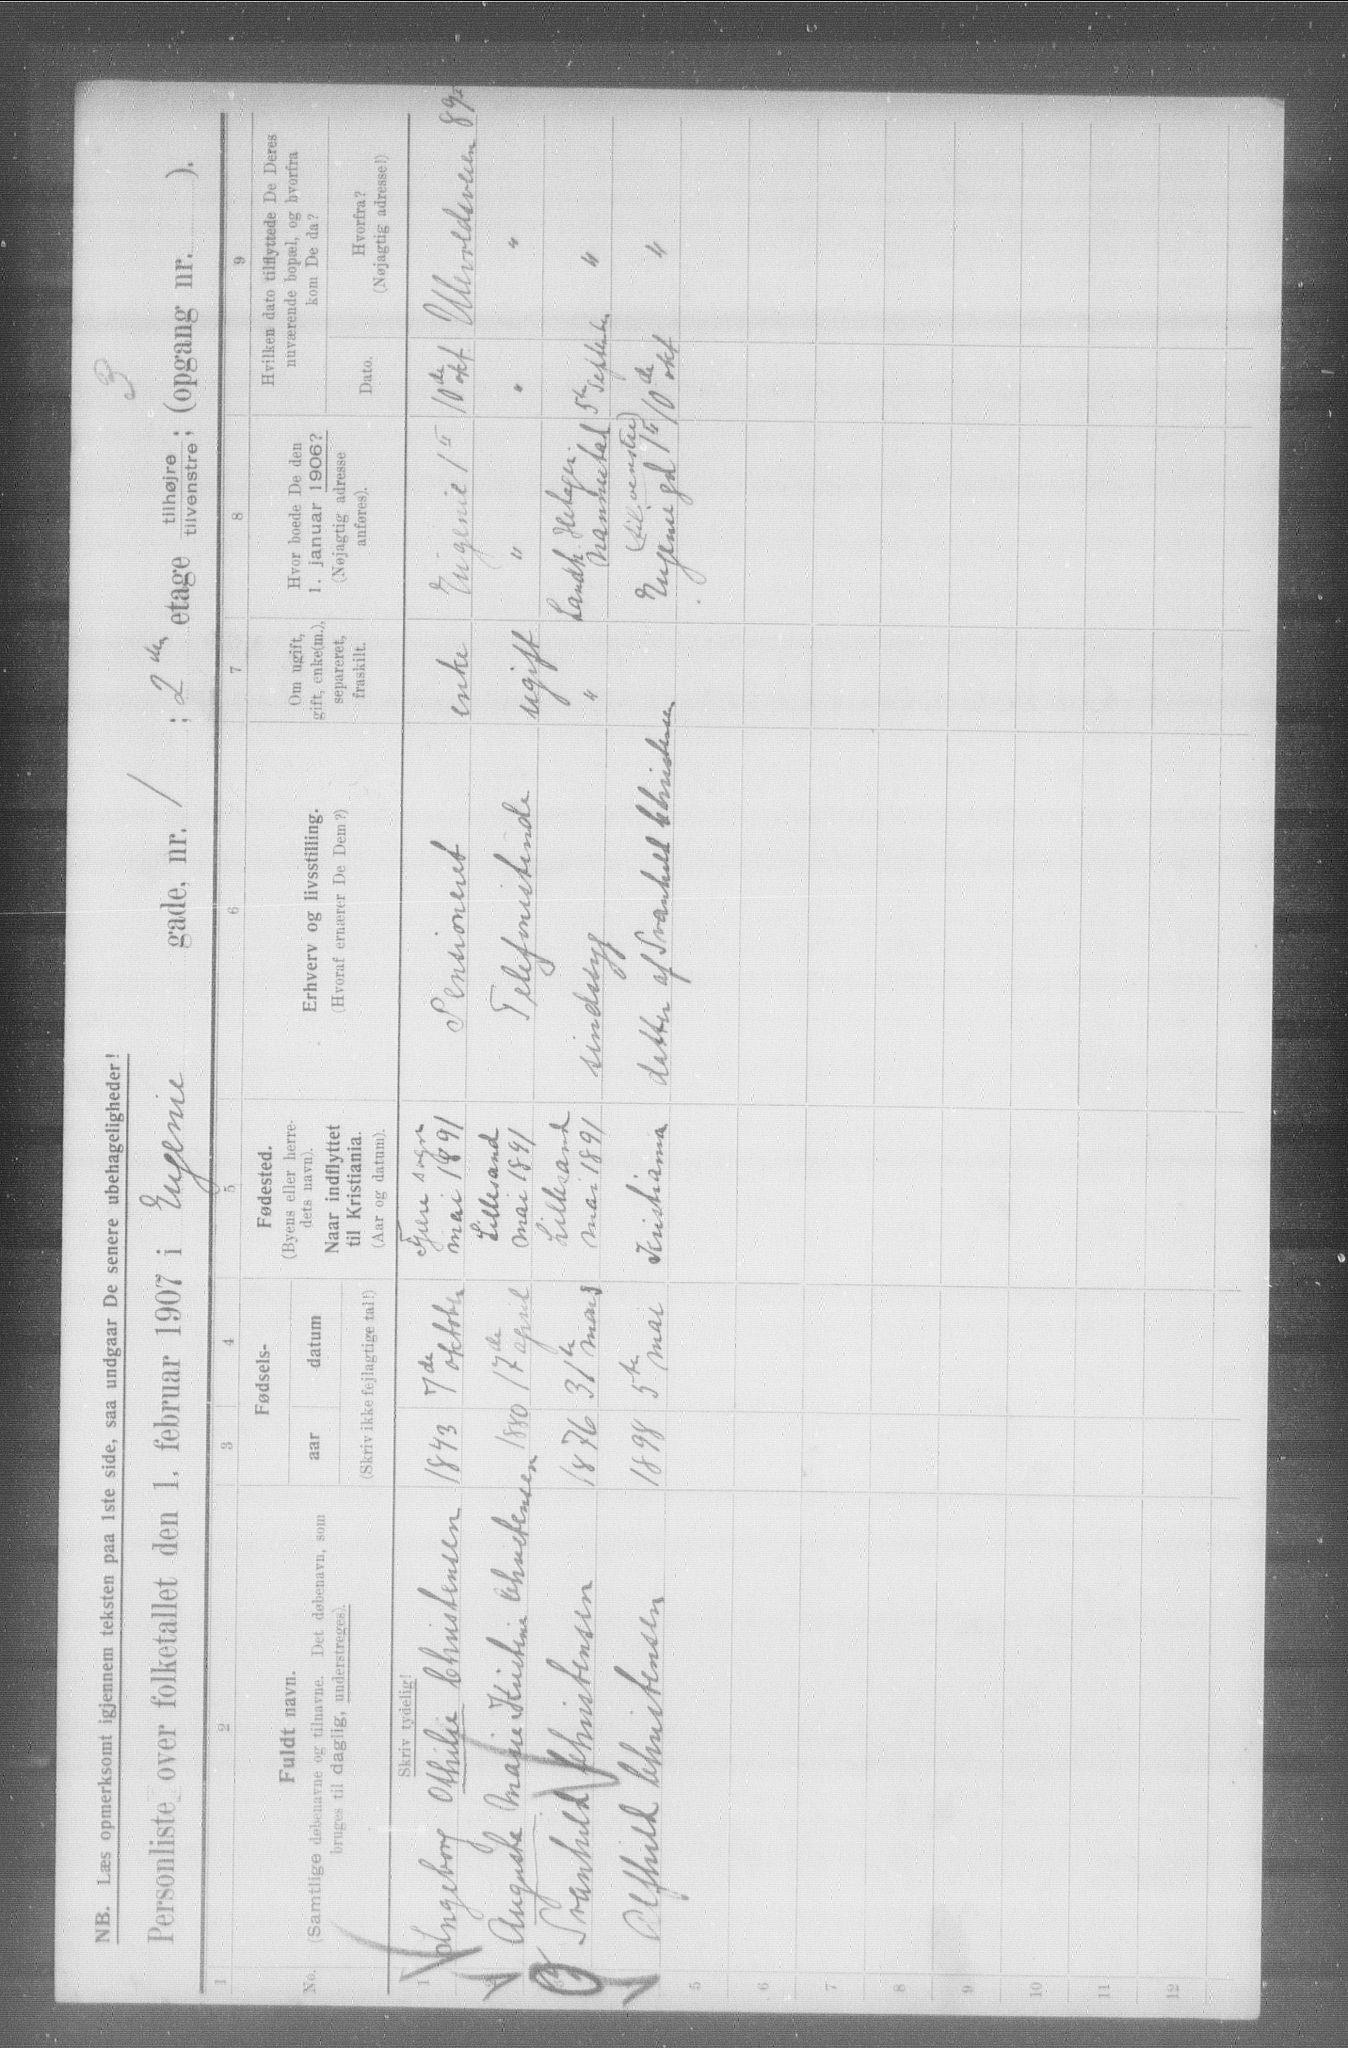 3
NB. Læs opmerksomt igjennem teksten paa 1ste side, saa undgaar De senere ubehageligheder!
Personliste over folketallet den 1. februar 1907 i Eugenie gade, nr. 1 ; 2den etage tilhøjre tilvenstre; (opgang nr. ).
1 2 3 4 5 6 7 8 9
No.
Fuldt navn.
(Samtlige døbenavne og tilnavne. Det døbenavn, som
bruges til daglig, understreges).
Fødsels-
aar datum
(Skriv ikke fejlagtige tal!)
Fødested.
(Byens eller herre-
dets navn).
Naar indflyttet
til Kristiania.
(Aar og datum).
Erhverv og livsstilling.
(Hvoraf ernærer De Dem?)
Om ugift,
gift, enke(m.),
separeret,
fraskilt.
Hvor boede De den
1. januar 1906?
(Nøjagtig adresse
anføres).
Hvilken dato tilflyttede De Deres
nuværende bopæl, og hvorfra
kom De da?
Dato.
Hvorfra?
(Nøjagtig adresse!)
Skriv tydelig!
1 Ingeborg Othilie Christensen 1843 7de oktober Fjære sogn mai 1891 Pensioneret enke Eugenie 1 10de okt Ullevoldsveien 89
2 Auguste Marie Kristine Christensen 1880 17de april Lillesand mai 1891 Telefonistinde ugift " " "
3 Svanhild Christensen 1876 31te mars Lillesand mai 1891 sindssyg " Landh. 5te September "
4 Alfhild Christensen 1898 5te mai Kristiania datter af Svanhild Christensen Eugenie gd 1 (til venstre) 10de okt "
5
6
7
8
9
10
11
12